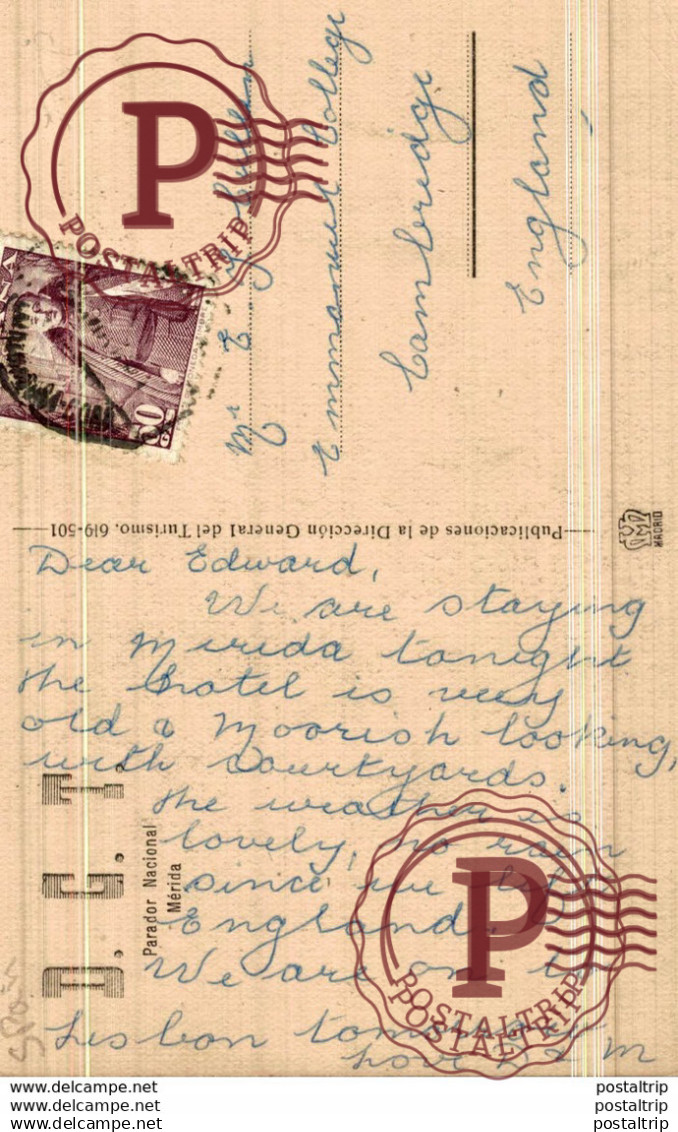 Mr E G
Emmanuel College
Cambridge
England
Publicaciones de la Dirección General del Turismo. 619-501
MADRID
Dear Edward,
We are staying
in Merida tonight
the hotel is very
old & Moorish looking,
with courtyards.
the weather is
lovely, no rain
since we left
England.
We are on to
Lisbon tomorrow
love D & M
D. G. T.
Parador Nacional
Mérida
Spain
80
P
POSTALTRIP
P
POSTALTRIP
POSTALTRIP
postaltrip
postaltrip
postaltrip